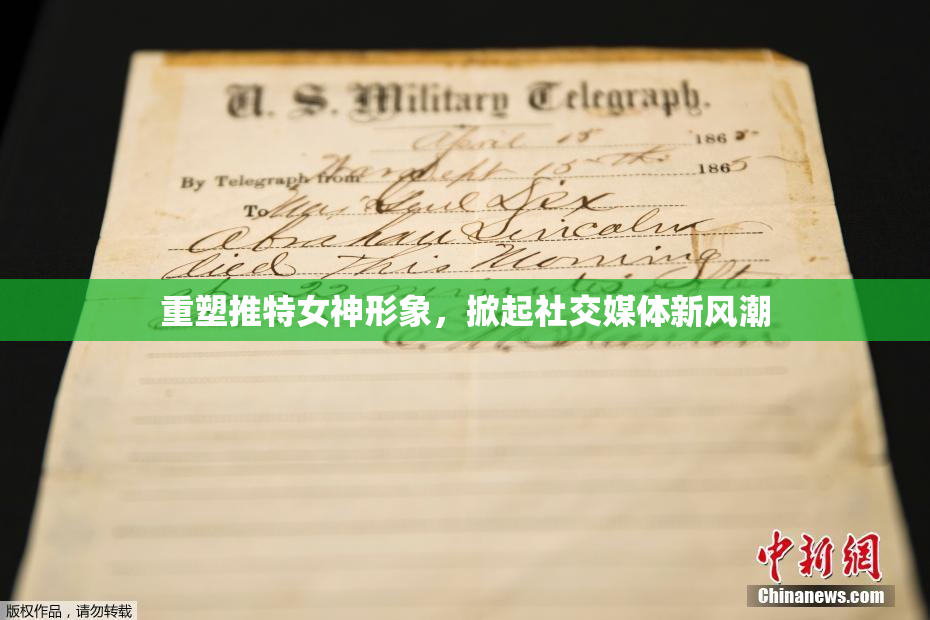 U. S. Military Telegraph.
April 15 1865
By Telegraph from War Dept 15th 1865
To Maj Genl Dix
Abraham Lincoln
died This Morning
at 22 minutes after
重塑推特女神形象，掀起社交媒体新风潮
E. M. Stanton
中新网
Chinanews.com
版权作品，请勿转载